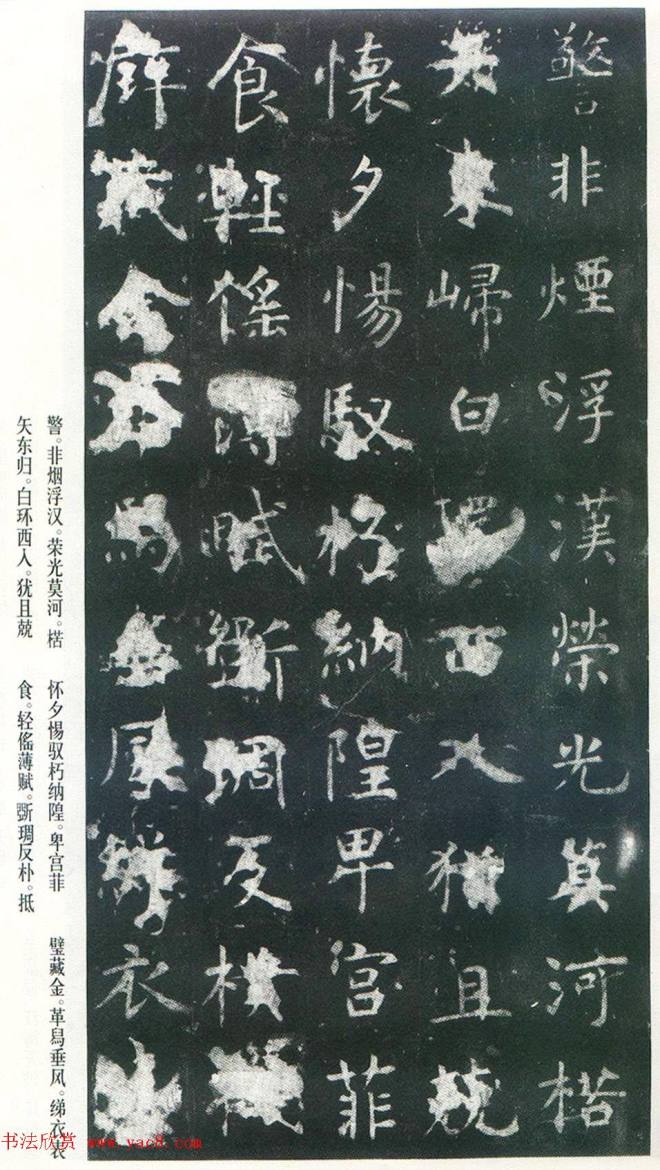 警非煙浮漢榮光莫河楛
矢東歸白環西入猶且兢
懷夕惕馭朽納隍卑宮菲
食輕傜薄賦斵琱反樸抵
璧藏金革舄垂風綈衣表
警。非烟浮汉。荣光莫河。楛
矢东归。白环西入。犹且兢
怀夕惕驭朽纳隍。卑宫菲
食。轻傜薄赋。斵琱反朴。抵
璧藏金。革舄垂风。绨衣表
书法欣赏 www.yac8.com